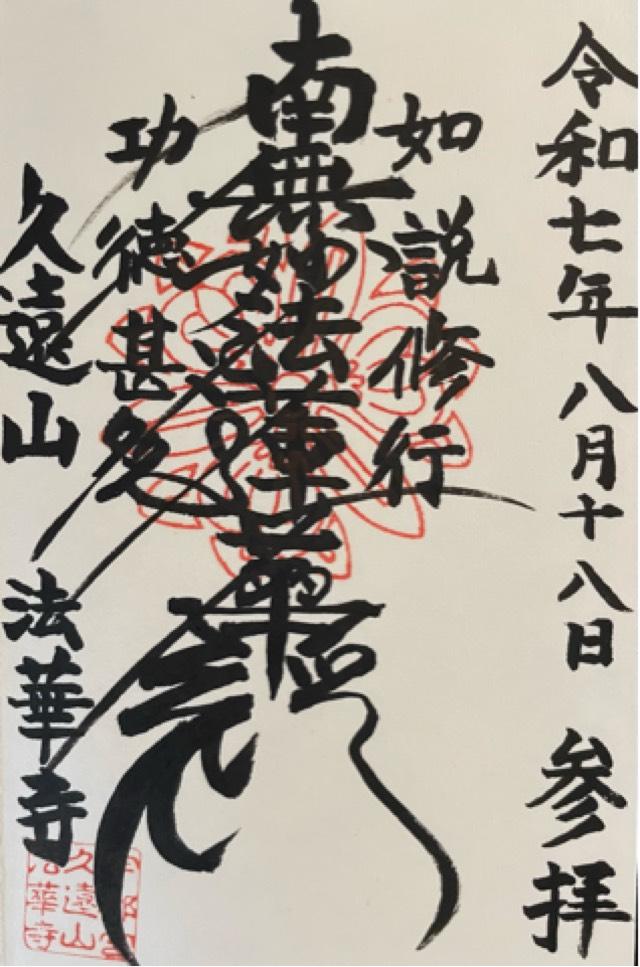 令和七年八月十八日 参拝
如説修行
南無妙法蓮華経
功徳甚多
久遠山 法華寺
久遠山
法華寺